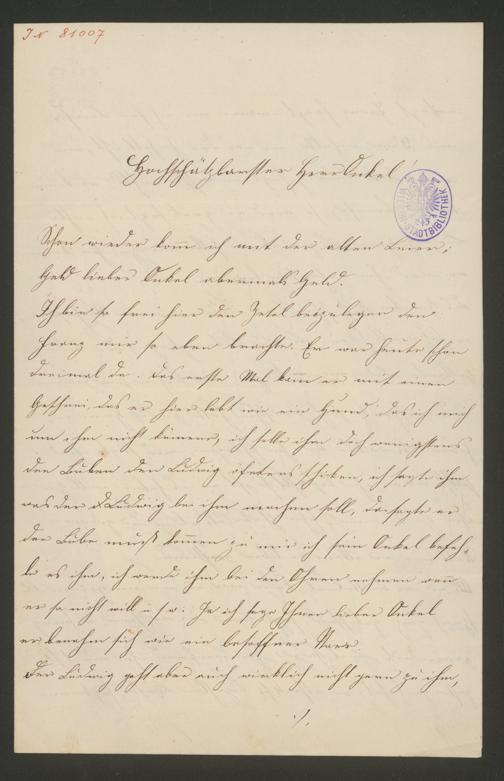 JN 81007
Hochschätzbarster Herr Onkel!
STADTBIBLIOTHEK
Schon wieder kom ich mit der alten Leier;
Geld lieber Onkel abermals Geld.
Ich bin so frei hier den Zetel beizulegen den
Franz mir so eben brachte. Er war heute schon
dreimal da. Das erste Mal kam er mit einen
Geschrei, das er hier lebt wie ein Hund, das ich mich
um ihm nicht kümere, ich solle ihm doch wenigstens
den Buben den Ludwig öfeters schiken, ich sagte ihm
was der Ludwig bei ihm machen soll, da sagte er
der Bube muß kommen zu mir ich sein Onkel befeh-
le es ihm, ich werde ihm bei den Ohren nehmen wen
er so nicht will u. s. w. Ja ich sage Ihnen lieber Onkel
er benehm sich wie ein besoffner Narr
Der Ludwig geht aber auch wirklich nicht gern zu ihm,
./.